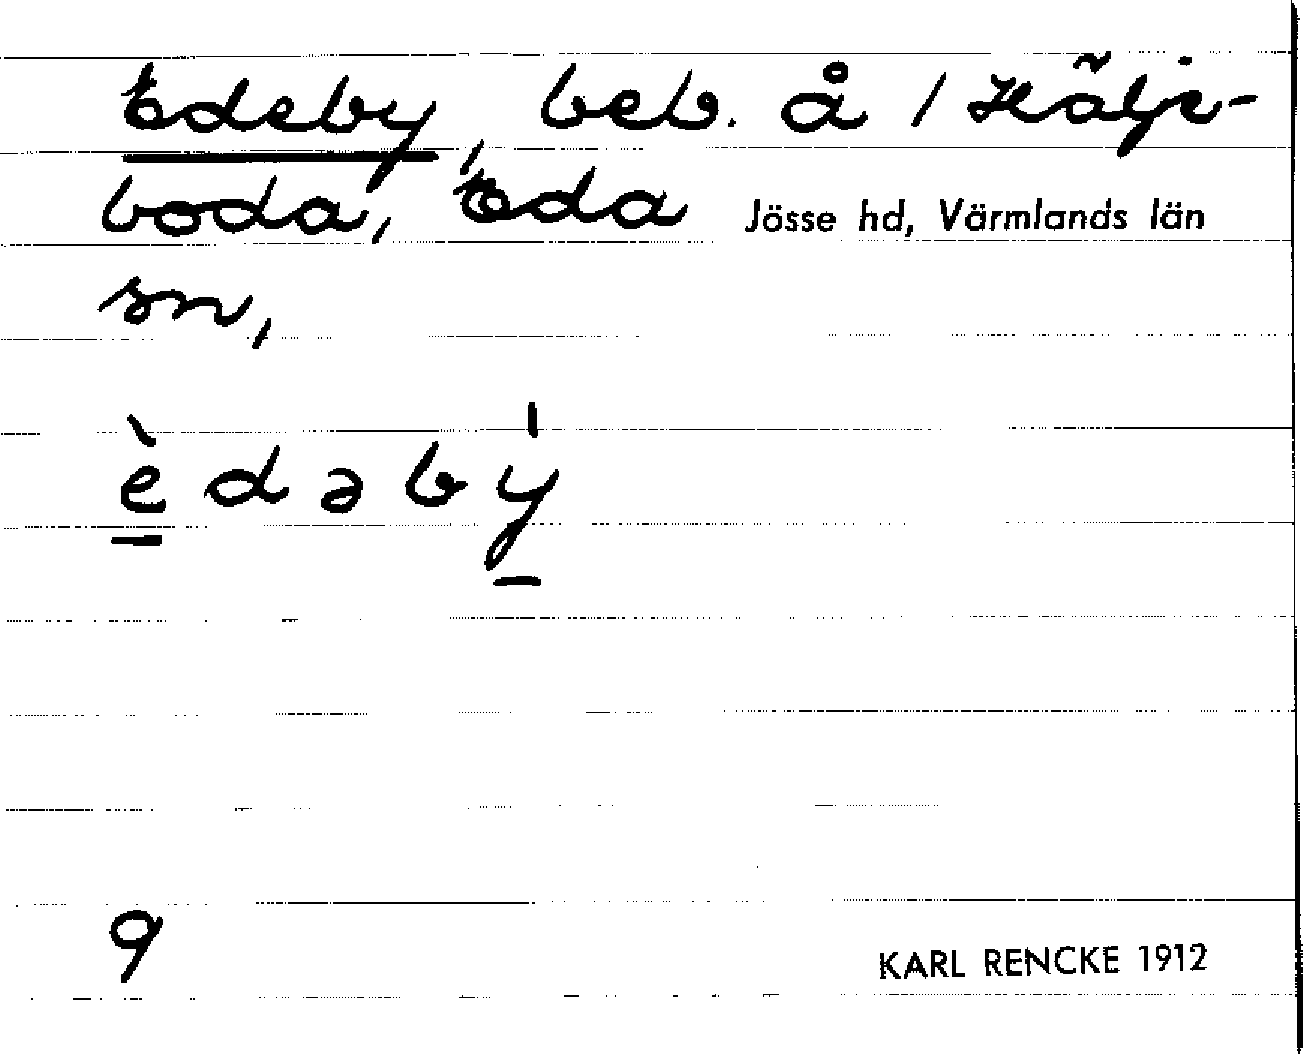 Edeby, beb. å 1 Häljeboda, Eda Jösse hd, Värmlands län
sn,
èdəbý
9
KARL RENCKE 1912